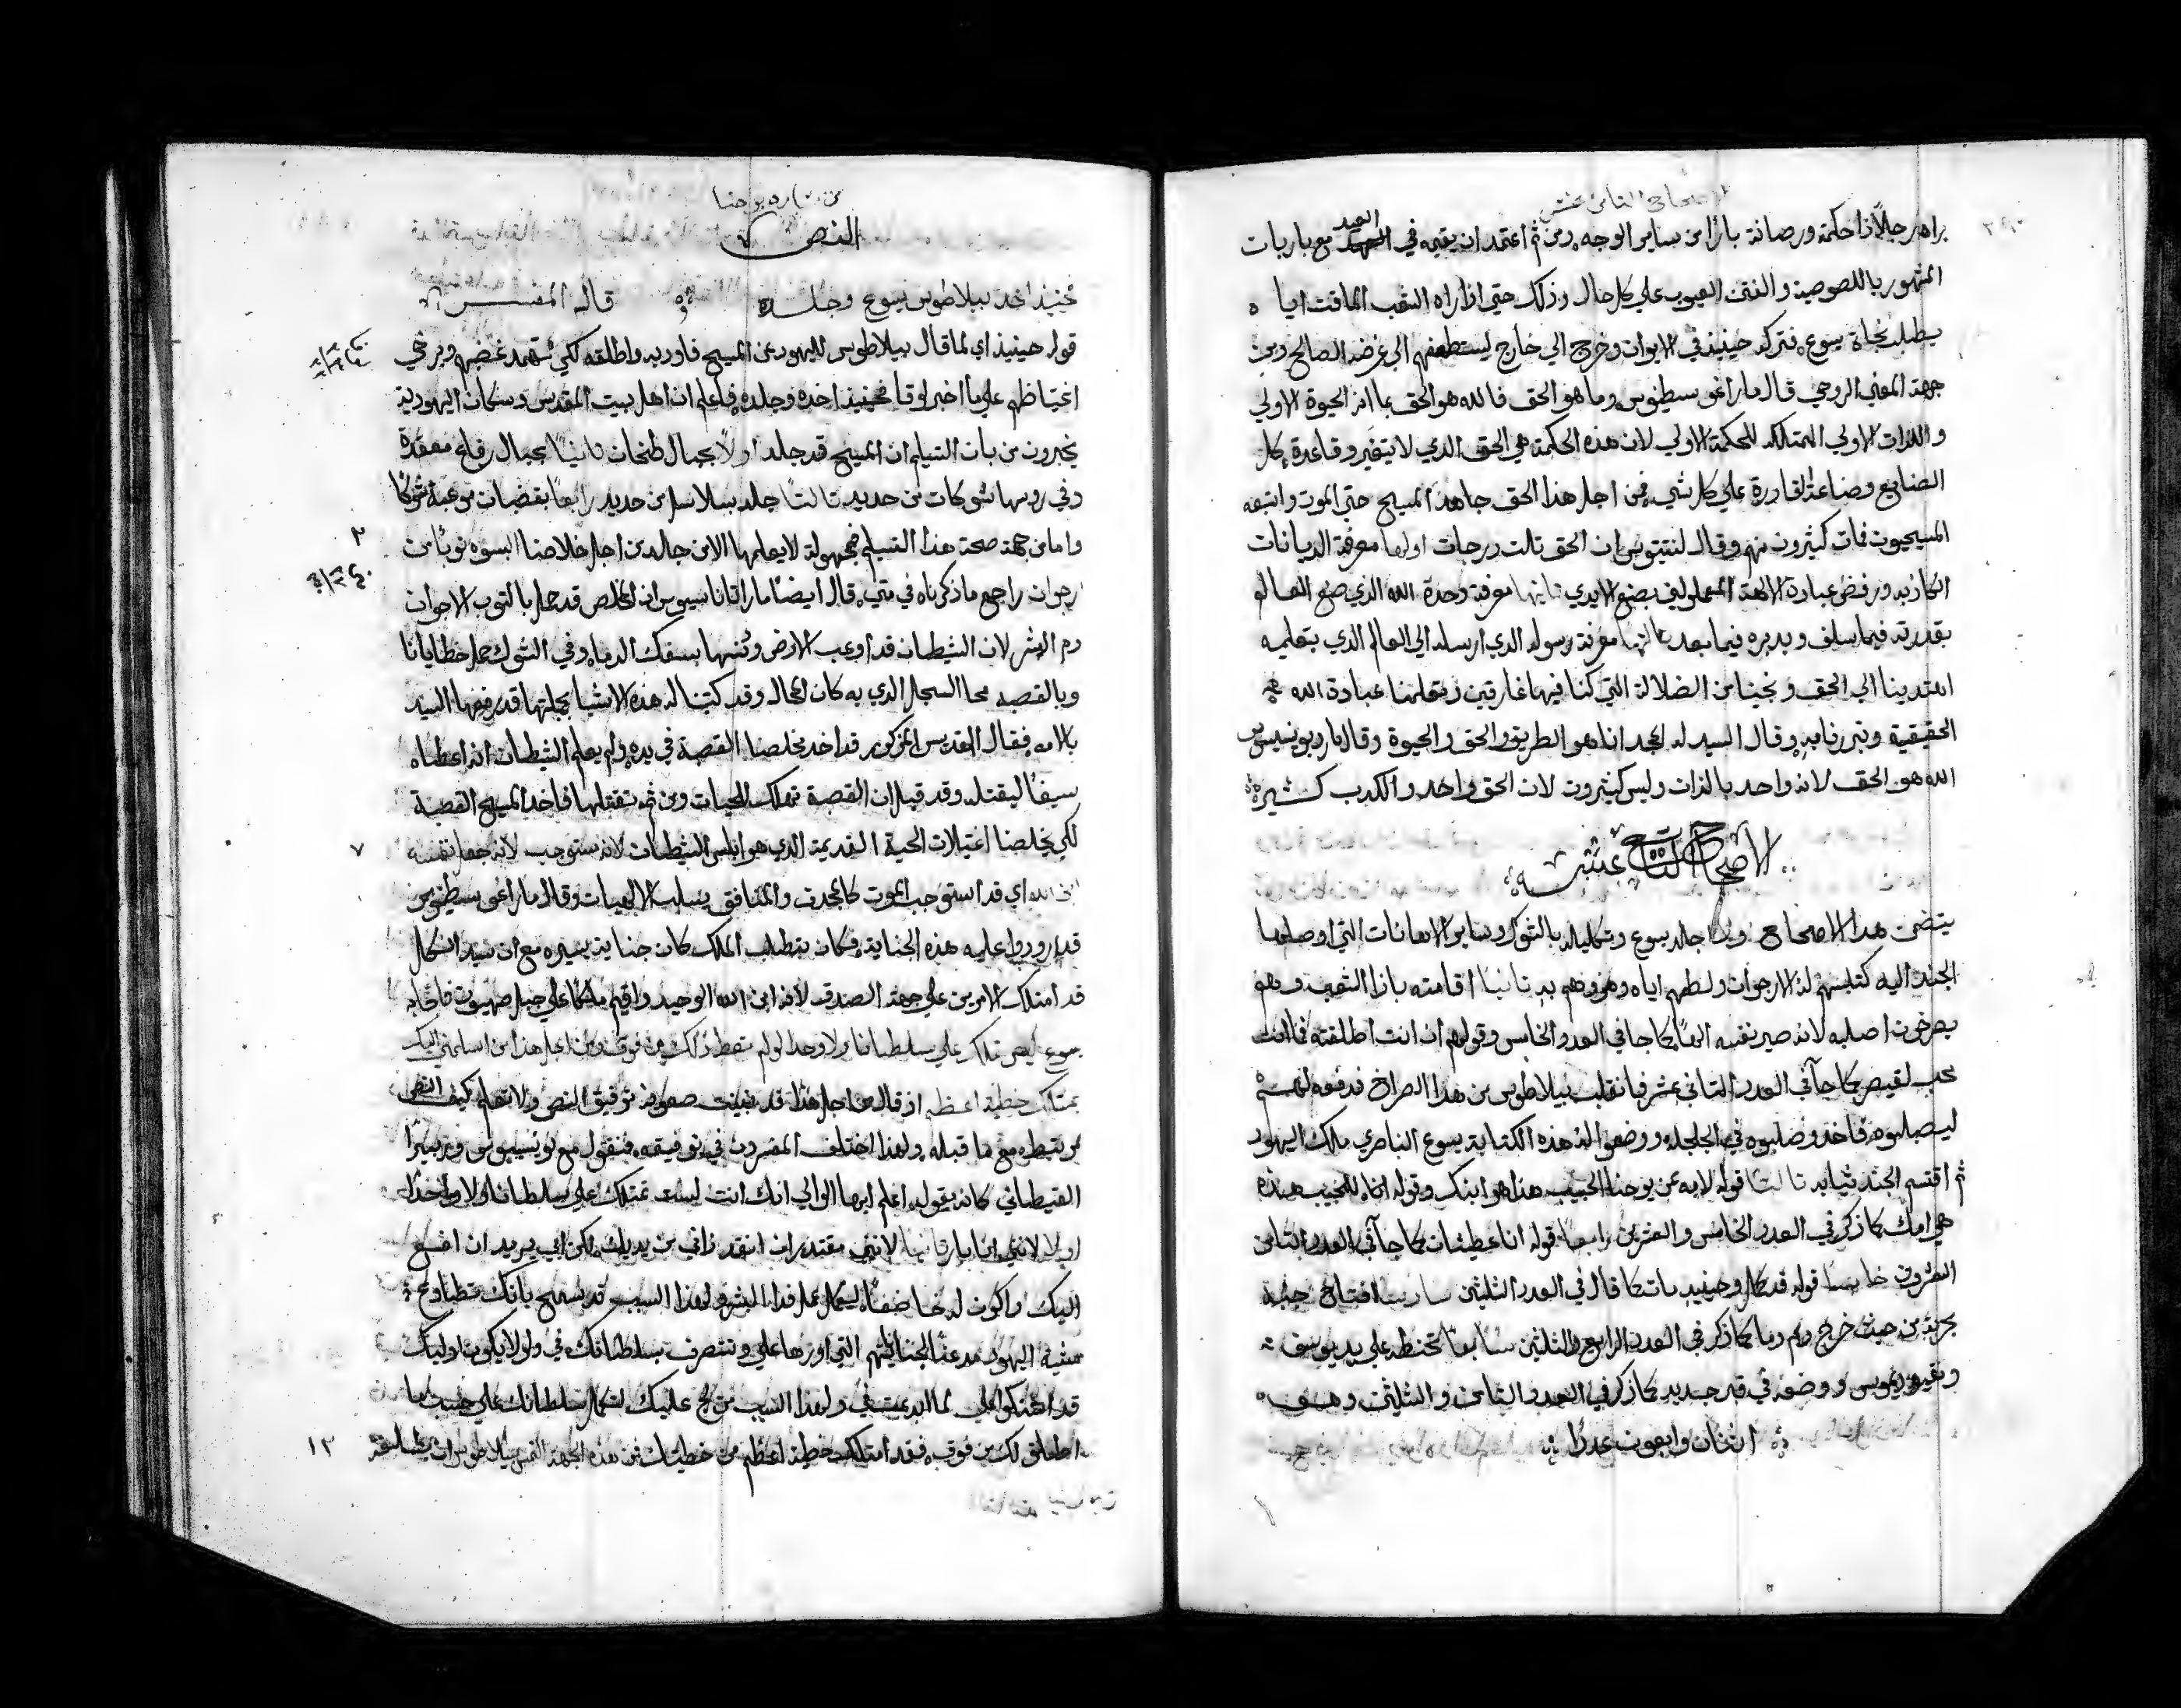 الاصحاح الثامن عشر
براه رجلاً ذا حكمة ورصانة بازا من ساير الوجه ومن ثم اعتمد ان يقيمه في العيد مع باربات
المشهور باللصوصية والفتن العيوب علي كل حال وذلك حتي اذا راه الشعب الماقت اياه
يطلب نجاة يسوع فتركه حينيذ في الايوان وخرج الي خارج ليستطعفهم الي غرضه الصالح ومن
جهة المعني الروحي قال مار اغوسطينوس وما هو الحق فالله هو الحق بما انه الحيوة الاولي
والذات الاولي الممتلكه للحكمة الاولي لان هذه الحكمة هي الحق الذي لا يتغير وقاعدة كل
الصنايع وصناعة لقادرة علي كل شي فمن اجل هذا الحق جاهد المسيح حتي الموت واتبعه
المسيحيون فمات كثيرون منهم وقال لنتنيوس ان الحق ثالث درجات اولها معرفة الديانات
الكاذبه ورفض عبادة الالهة المعمولين بصنع الايدي ثانيها معرفة وحدة الله الذي صنع العالم
بقدرته فيما سلف ويدبره فيما بعد ثالثها معرفة رسوله الذي ارسله الي العالم الذي بتعليمه
اهتدينا الي الحق ونجينا من الضلالة التي كنا فيها غارقين وتعلمنا عبادة الله
الحقيقية وتبررنا به وقال السيد له المجد انا هو الطريق والحق والحيوة وقال مار ديونيسيوس
الله هو الحق لانه واحد بالذات وليس كثيرون لان الحق واحد والكدب كثيرة
الاصحاح التاسع عشر
يتضمن هدا الاصحاح اولاً جلد يسوع وتكليله بالشوك وساير الاهانات التي اوصلها
الجند اليه كتلبسهم له الارجوان ولطمهم اياه وهزوهم به ثانياً اقامته بازا الشعب وهو
يصرخون اصلبه لانه صير نفسه الهاً كما جا في العدد الخامس وقولهم ان انت اطلقته فما انت
محب لقيصر كما جا في العدد الثاني عشر فانقلب بيلاطوس من هدا الصراخ فدفعه لهم
ليصلبوه فاخدو وصلبوه في الجلجله ووضعو له هذه الكتابة يسوع الناصري ملك اليهود
ثم اقتسم الجند ثيابه ثالثاً قوله لامه عن يوحنا الحبيب هذا هو ابنك وقوله للحبيب هذه
هي امك كما ذكر في العدد الخامس والعشرين رابعاً قوله انا عطشان كما جا في العدد الثامن
العشرون خامساً قوله قد كمل وحينيد مات كما قال في العدد الثلثين سادساً افتتاح جنبه
بحربة من حيث خرج دم وما كما ذكر في العدد الرابع والثلثين سابعاً تحنطه علي يد يوسف
ونيقوديموس ووضعه في قبر جديد كما ذكر في العدد الثامن والثلثين وهو
اثنان واربعون عدداً
من بشاره يوحنا
النص
فحينيذ اخد بيلاطوس يسوع وجلده قال المفسر
قوله حينيذ اي لما قال بيلاطوس لليهود عن المسيح فاوديه واطلقه لكي تهمد غضبهم ويرخي
اغتياظهم علي ما اخبر لوقا فحينيذ اخده وجلده فاعلم ان اهل بيت المقدس وسكان اليهودية
يخبرون من بات التسليم ان المسيح قد جلد اولاً بحبال طنخات ثانياً بحبال رفاع معقدة
وفي روسها شوكات من حديد ثالثاً جلد بسلاسل من حديد رابعاً بقضبان موعبة شوكاً
واما من جهة صحة هذا التسليم فمجهولة لا يعلمها الا من جالد من اجل خلاصنا البسوه ثوباً من
ارجوان راجع ما ذكرناه في متي قال ايضاً مار اتاناسيوس ان المخلص قد حمل بالثوب الارجوان
دم البشر لان الشيطان قد اوعب الارض ودنسها بسفك الدما وفي الشوك حمل خطايانا
وبالقصبه محا السجل الذي به كان المحال وقد كتبنا له هذه الاشيا بجملتها قد رفعها السيد
بالامه فقال القديس المذكور قد اخد مخلصنا القصبة في يده ولم يعلم الشيطان انه اعطاه
سيفاً ليقتله وقد قيل ان القصبة تهلك الحيات ومن ثم تقتلها فاخد المسيح القصبة
لكي يخلصنا اغتيالات الحية القديمة الدي هو ابليس الشيطان لانه مستوجب لانه جعل نفسه
ابن الله اي قد استوجب الموت كالمجدف والمنافق يسلب الالهيات وقال مار اغوسطينوس
قد اوردوا عليه هذه الجناية فكان بتطلب الملك كان جناية يسيره مع ان سيد الكل
قد امتلك الامرين علي جهة الصدق لانه ابن الله الوحيد واقيم ملكاً علي جبل صهيون فاجابه
يسوع ليس تملك علي سلطاناً ولا وحداً لو لم تعط ذلك من فوق ومن اجل هذا من اسلمني اليك
يمتلك خطية اعظم اذ قال من اجل هذا قد تبينت صعوبة توفيق النص ولا تعلم كيف النص
مرتبطه مع ما قبله ولهذا اختلف المفسرون في توفيقه فنقول مع لونسيوس وفرنبيرا
القيطاني كانه يقول اعلم ايها الوالي انك انت ليست تمتلك علي سلطاناً ولا واحداً
اولاً لانني انا بار ثانياً لانني مقتدر ان انقد ذاتي من يديك لكن ابي يريد ان اخضع
اليك واكون له خاضعاً ليكمل عمل فدا البشر ولهذا السبب قد يسمح بانك تطاوع
مشية اليهود مدعناً لجنايتهم التي اوردها علي وتتصرف بسلطانك في ولولا يكون اوليك
لما ابدعت في ولهذا السبب علي
اطلق لك من فوق فقد امتلك خطية اعظم من خطيتك فمن هذه الجهة التمس بيلاطوس ان يطلقه